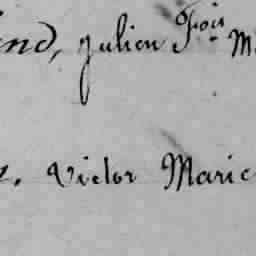 ind, Julien Fois M
e. Victor Marie